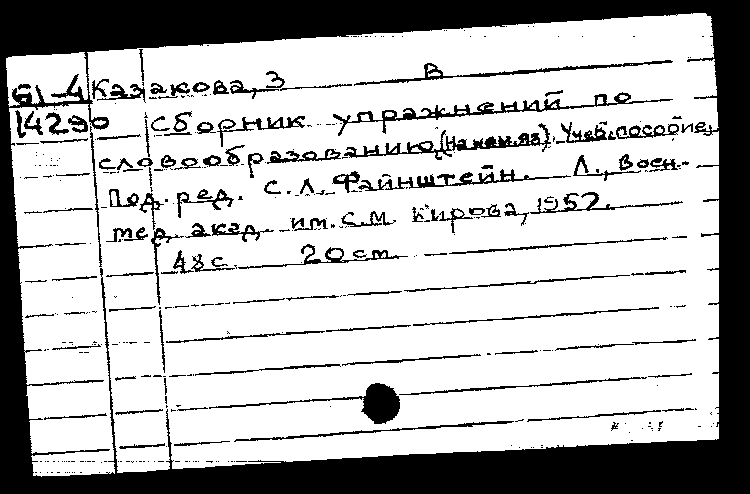 61-4 Казакова, З В
14290 Сборник упражнений по
словообразованию (На нем. яз). Учеб. пособие.
Под. ред. С. Л. Файнштейн. Л., Воен.-
мед. акад. им. С. М. Кирова, 1957.
48 с. 20 см.